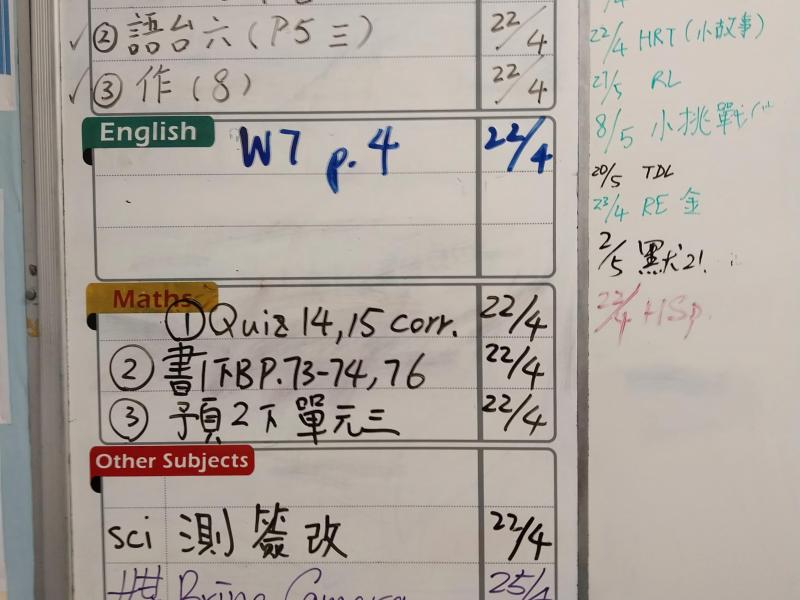 ✓ ② 語台六（P5 三） 22/4
✓ ③ 作（8） 22/4
English
W7 p.4 22/4
Maths
① Quiz 14,15 corr. 22/4
② 書1下B P.73-74,76 22/4
③ 預2下單元三 22/4
Other Subjects
sci 測簽改 22/4
Bring Camera 25/4
22/4 HRT（小故事）
27/5 RL
8/5 小挑戰
20/5 TDL
23/4 RE 金
2/5 默21.
22/4 HSp.